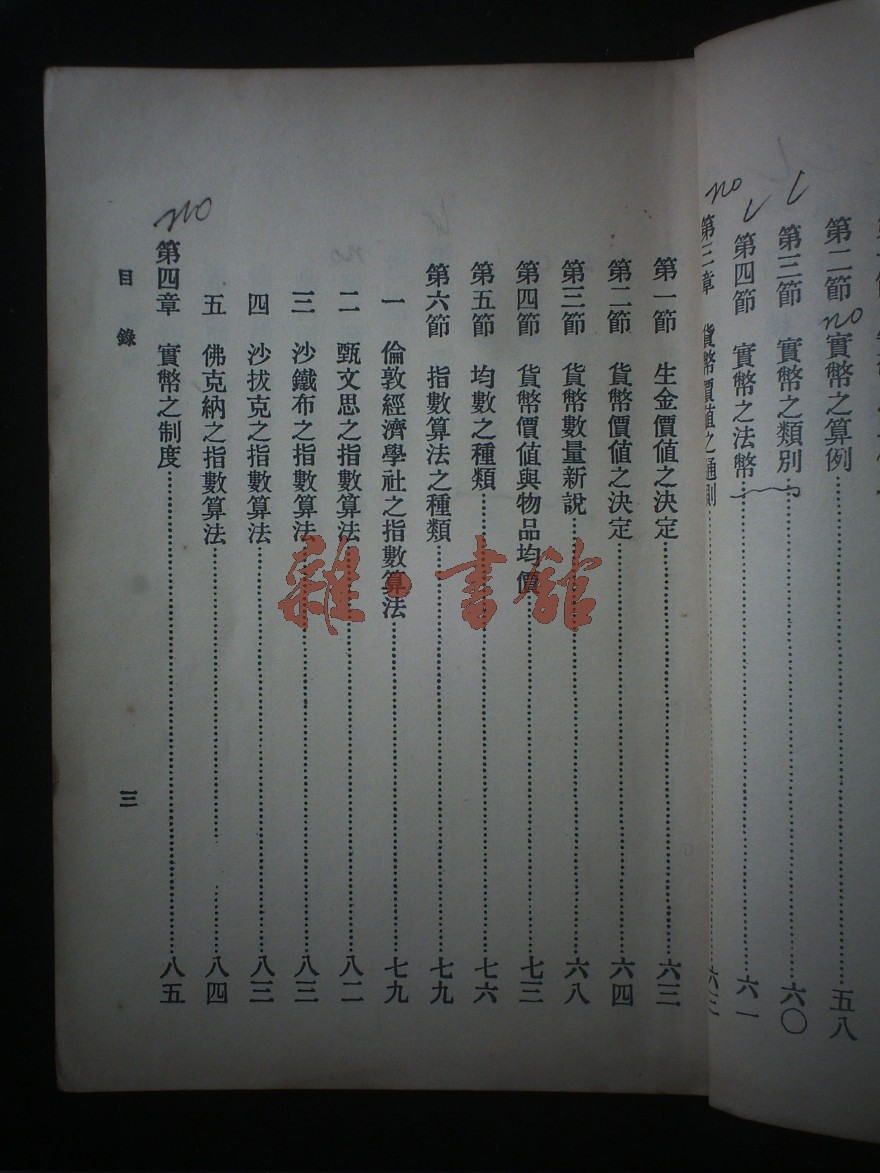 第二節 實幣之算例……五八
no
第三節 實幣之類別……六〇
第四節 實幣之法幣……六一
no
第三章 貨幣價值之通則……六三
第一節 生金價值之決定……六三
第二節 貨幣價值之決定……六四
第三節 貨幣數量新說……六八
第四節 貨幣價值與物品均價……七三
第五節 均數之種類……七六
第六節 指數算法之種類……七九
一 倫敦經濟學社之指數算法……七九
二 甄文思之指數算法……八二
三 沙鐵布之指數算法……八三
四 沙拔克之指數算法……八三
五 佛克納之指數算法……八四
no
第四章 實幣之制度……八五
目錄
三
雜·書館